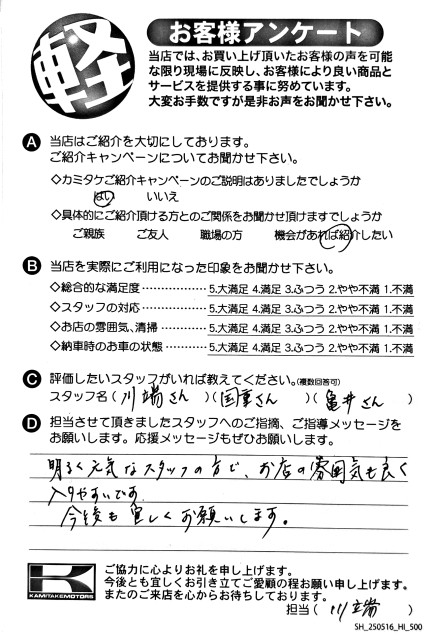 軽
お客様アンケート
当店では、お買い上げ頂いたお客様の声を可能
な限り現場に反映し、お客様により良い商品と
サービスを提供する事に努めています。
大変お手数ですが是非お声をお聞かせ下さい。
A 当店はご紹介を大切にしております。
ご紹介キャンペーンについてお聞かせ下さい。
◇カミタケご紹介キャンペーンのご説明はありましたでしょうか
はい いいえ
◇具体的にご紹介頂ける方とのご関係をお聞かせ頂けますでしょうか
ご親族 ご友人 職場の方 機会があれば紹介したい
B 当店を実際にご利用になった印象をお聞かせ下さい。
◇総合的な満足度⋯⋯⋯⋯⋯⋯ 5.大満足 4.満足 3.ふつう 2.やや不満 1.不満
◇スタッフの対応⋯⋯⋯⋯⋯⋯ 5.大満足 4.満足 3.ふつう 2.やや不満 1.不満
◇お店の雰囲気、清掃⋯⋯⋯⋯ 5.大満足 4.満足 3.ふつう 2.やや不満 1.不満
◇納車時のお車の状態⋯⋯⋯⋯ 5.大満足 4.満足 3.ふつう 2.やや不満 1.不満
C 評価したいスタッフがいれば教えてください。(複数回答可)
スタッフ名(川端さん)(国重さん)(亀井さん)
D 担当させて頂きましたスタッフへのご指摘、ご指導メッセージを
お願いします。応援メッセージもぜひお願いします。
明るく元気なスタッフの方で、お店の雰囲気も良く
入りやすいです。
今後も宜しくお願いします。
K
KAMITAKEMOTORS
ご協力に心よりお礼を申し上げます。
今後とも宜しくお引き立てご愛顧の程お願い申し上げます。
またのご来店を心からお待ちしております。
担当(川端)
SH_250516_HI_500